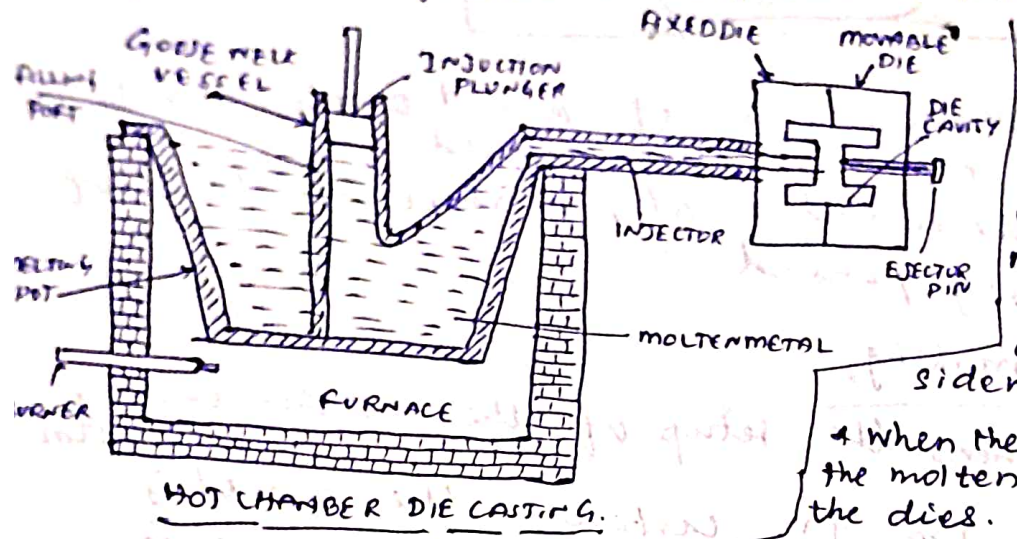 GOOSE NECK
VESSEL
INJUCTION
PLUNGER
AXEDDIE
MOVABLE
DIE
DIE
CAVITY
FILLING
PORT
INJECTOR
EJECTOR
PIN
ELTING
POT
MOLTENMETAL
URNER
FURNACE
HOT CHAMBER DIE CASTING.
sider
when the
the molten
the dies.